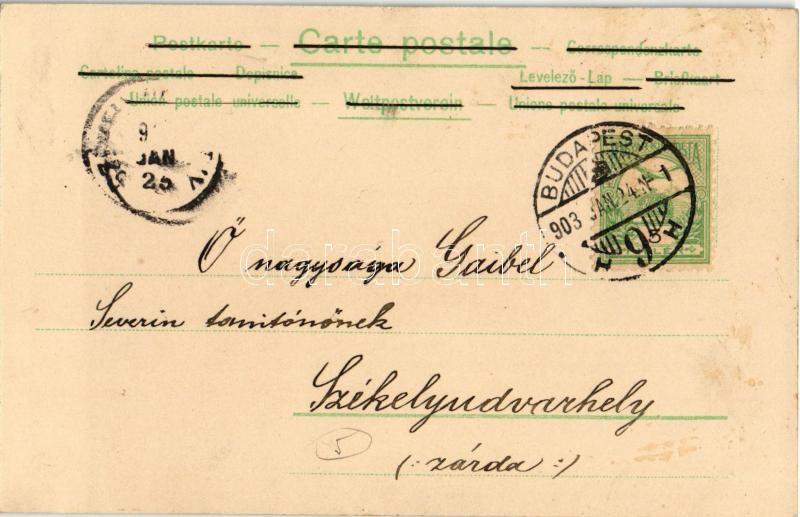 Postkarte — Carte postale — Correspondenzkarte
Cartolina postale — Dopisnice
Levelező-Lap — Briefkaart
Union postale universelle — Weltpostverein — Unione postale universale
JAN
25
BUDAPEST
903 JAN 24
Ő nagysága Gaibel
Severin tanitónőnek
Székelyudvarhely
(: zárda :)
5
darabanth